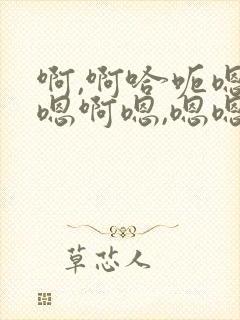 啊,啊哈呃嗯
嗯啊嗯,嗯嗯
草芯人